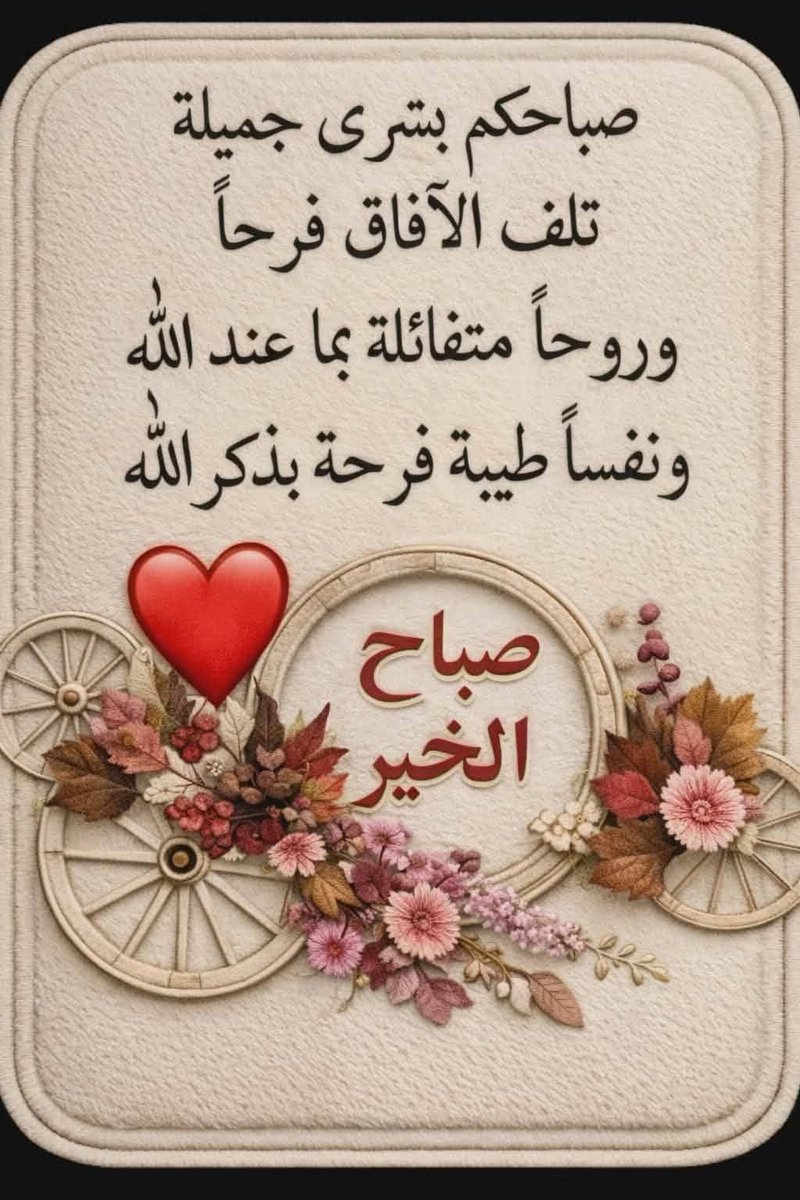 صباحكم بشرى جميلة
تلف الآفاق فرحاً
وروحاً متفائلة بما عند الله
ونفساً طيبة فرحة بذكر الله
صباح
الخير